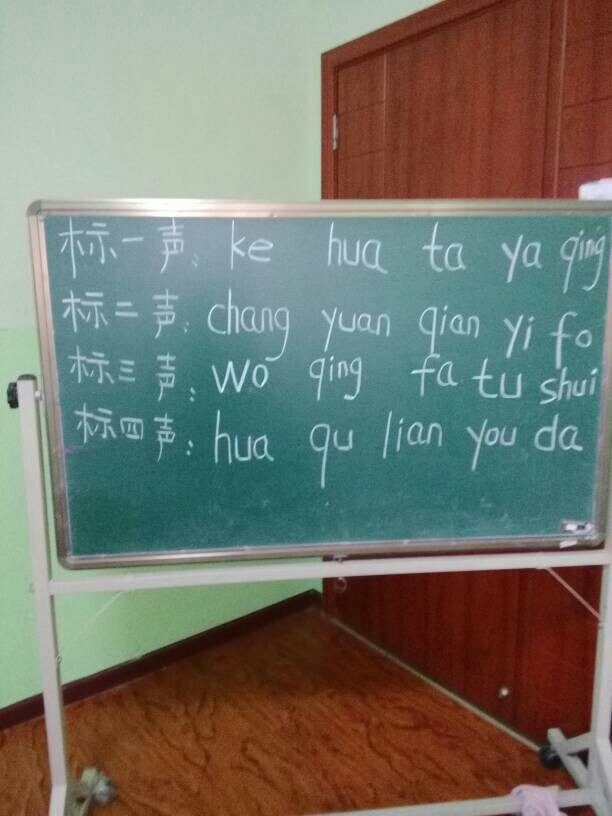 标一声: ke hua ta ya qing
标二声: chang yuan qian yi fo
标三声: wo qing fa tu shui
标四声: hua qu lian you da